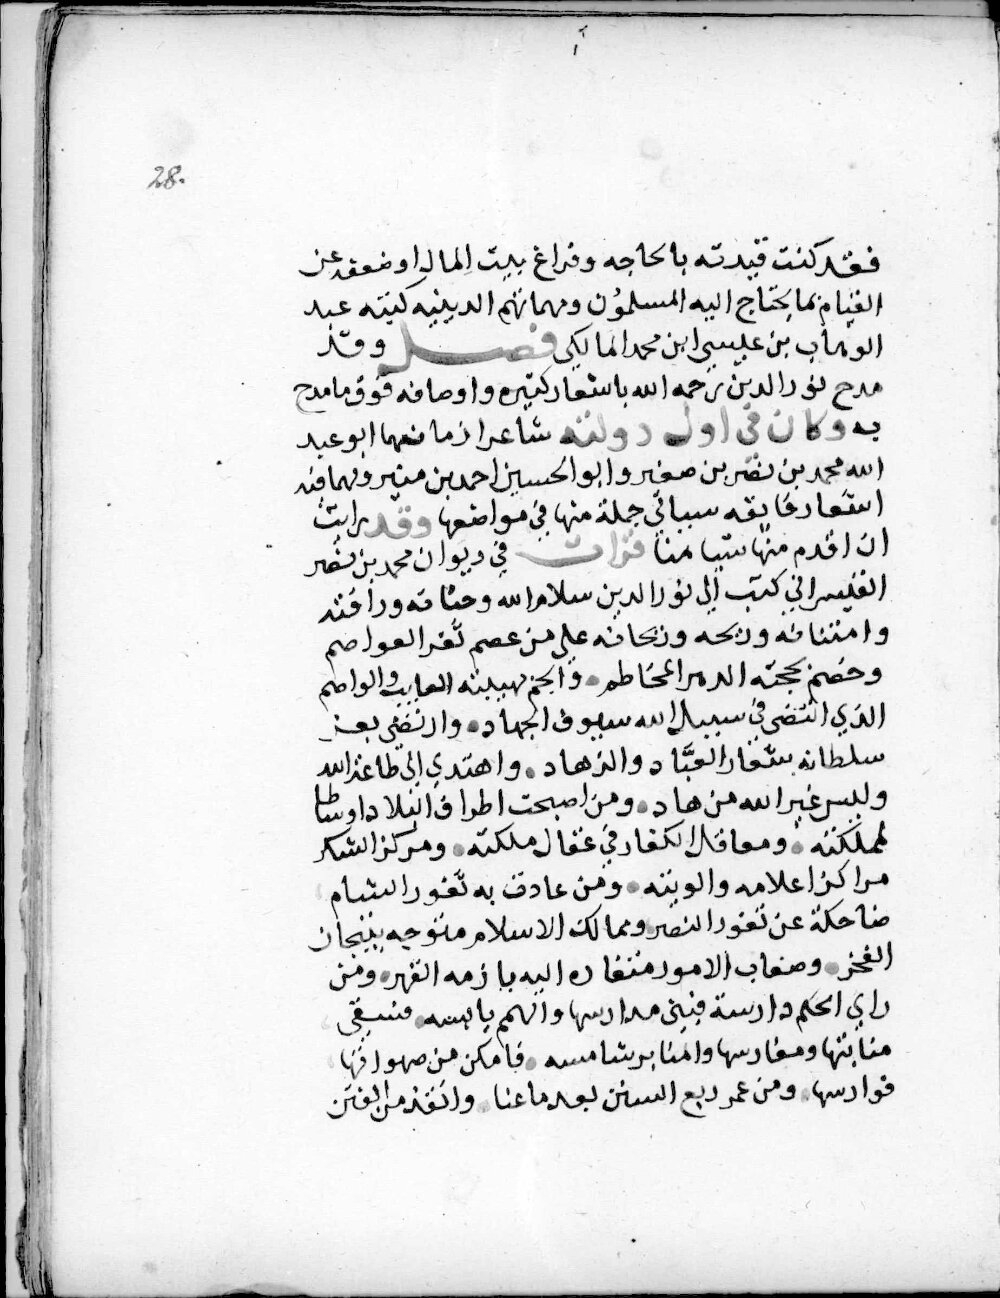 28.
فقد كنت قيدته بالحاجه وفراغ بيت المال او ضعفه عن
القيام بما يحتاج اليه المسلمون ومهماتهم الدينيه كتبه عبد
الوهاب بن عيسى ابن محمد المالكي فصل وقد
مدح نور الدين رحمه الله باشعار كثيره واوصافه فوق ما مدح
به وكان في اول دولته شاعرا زمانهما ابو عبد
الله محمد بن نصر بن صغير وابو الحسين احمد بن منير ولهما فيه
اشعار فايقه سياتي جملة منها في مواضعها وقد رايت
ان اقدم منها شيا هنا قرات في ديوان محمد بن نصر
القيسراني كتب الى نور الدين سلام الله وحنانه ورافته
وامتنانه وروحه وريحانه على من عصم ثغر العواصم
وخصم بحجته الدهر المخاصم وافحم بهيبته العايب والواصم
الذي انتضى في سبيل الله سيوف الجهاد وارتضى بعز
سلطانه شعار العبَّاد والزهاد واهتدي الى طاعة الله
وليس غير الله من هاد ومن اصبحت اطراف البلاد اوساطا
لمملكته ومعاقل الكفار في عقال ملكته ومركز الشكر
مراكز اعلامه والويته ومن عادت به ثغور الشام
ضاحكة عن ثغور النصر وممالك الاسلام متوجه بتيجان
الفخر وصعاب الامور منقاده اليه بازمه القهر ومن
راي الحكم دارسة فبنى مدارسها والهمم يابسه فسقى
منابتها ومغارسها والمنابر شامسه فامكن من صهواتها
فوارسها ومن عمر ربع السنن بعد ما عفا وانقذ من الفتن